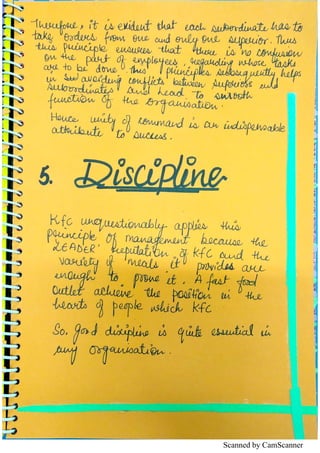 Therefore, it is evident that each subordinate has to
take orders from one and only one superior. Thus
this principle ensures that there is no confusion
on the part of employees, regarding whose tasks
are to be done. This principles subsequently helps
in avoiding conflicts between superiors and
subordinates and lead to smooth
function of the organisation.
Hence unity of command is an indispensable
attribute to success.
5. Discipline
Kfc unquestionably applies this
principle of management because the
'LEADER' reputation of Kfc and the
variety of meals it provides are
enough to prove it. A fast food
outlet achieve the position in the
hearts of people which Kfc
So, good discipline is quite essential in
any organisation.
Scanned by CamScanner